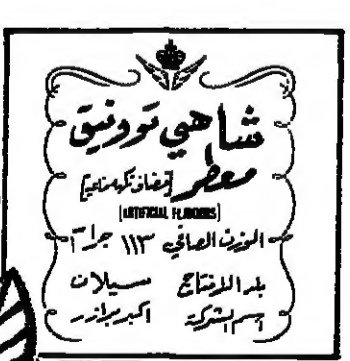 شاهي تووفيق
معطر [مضاف نكهصناعي]
[ARTIFICIAL FLAVOURS]
الوزن الصافي ١١٣ جرام
بلد الانتاج سيلات
اسم الشركة اكبر برازرز